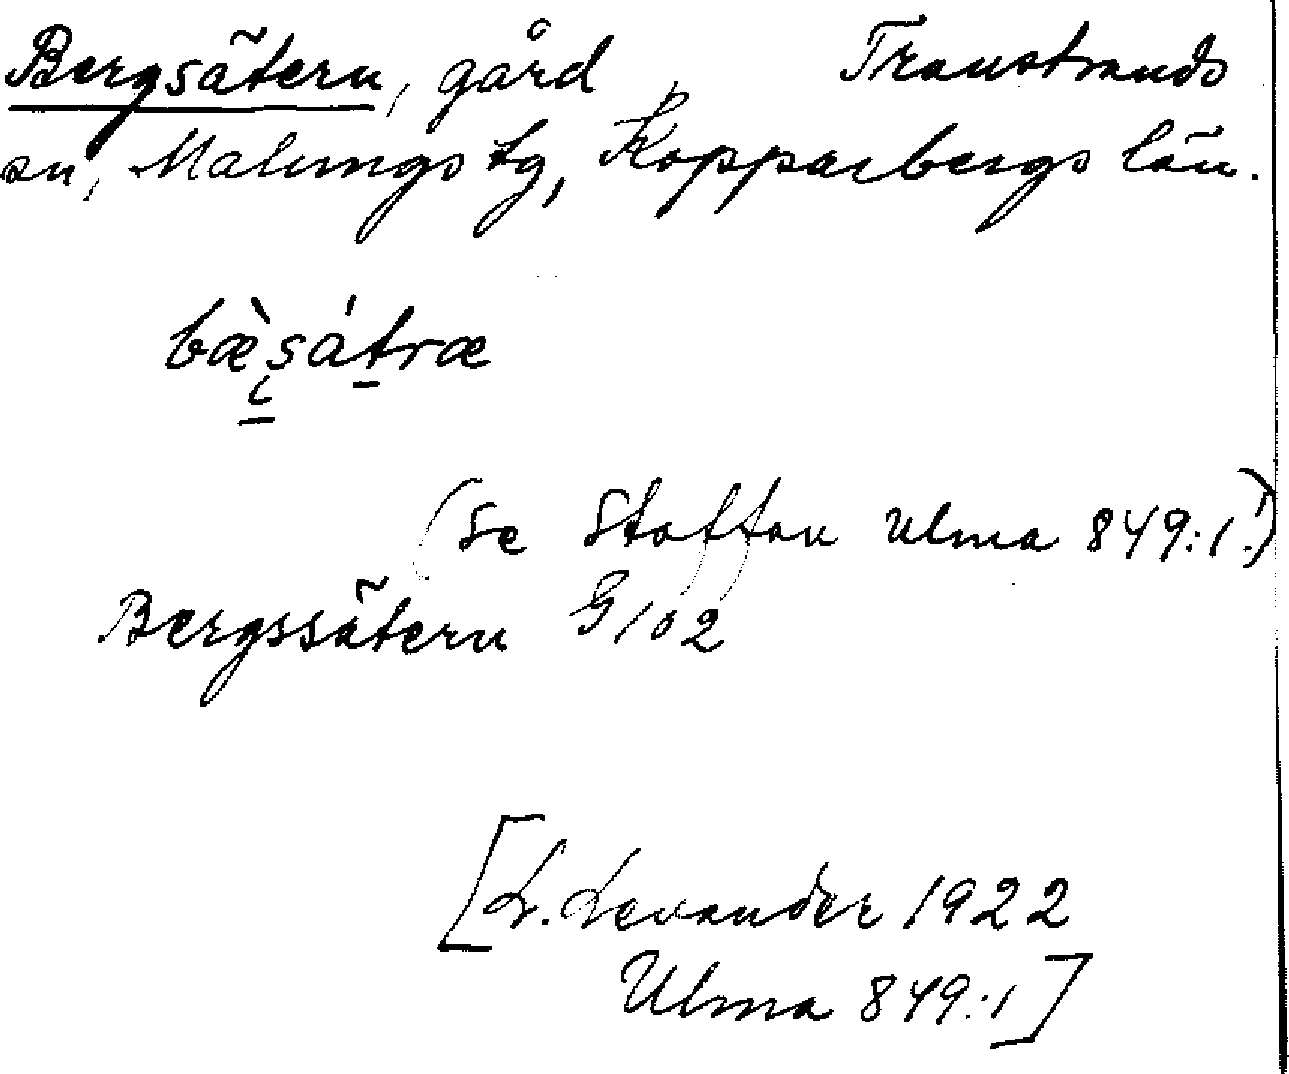 Bergsätern, gård, Transtrands
sn, Malungs tg, Kopparbergs län.
bæ̀sátræ
(Se Staffan Ulma 849:1!)
Bergssätern G102
[L. Levander 1922
Ulma 849:1]